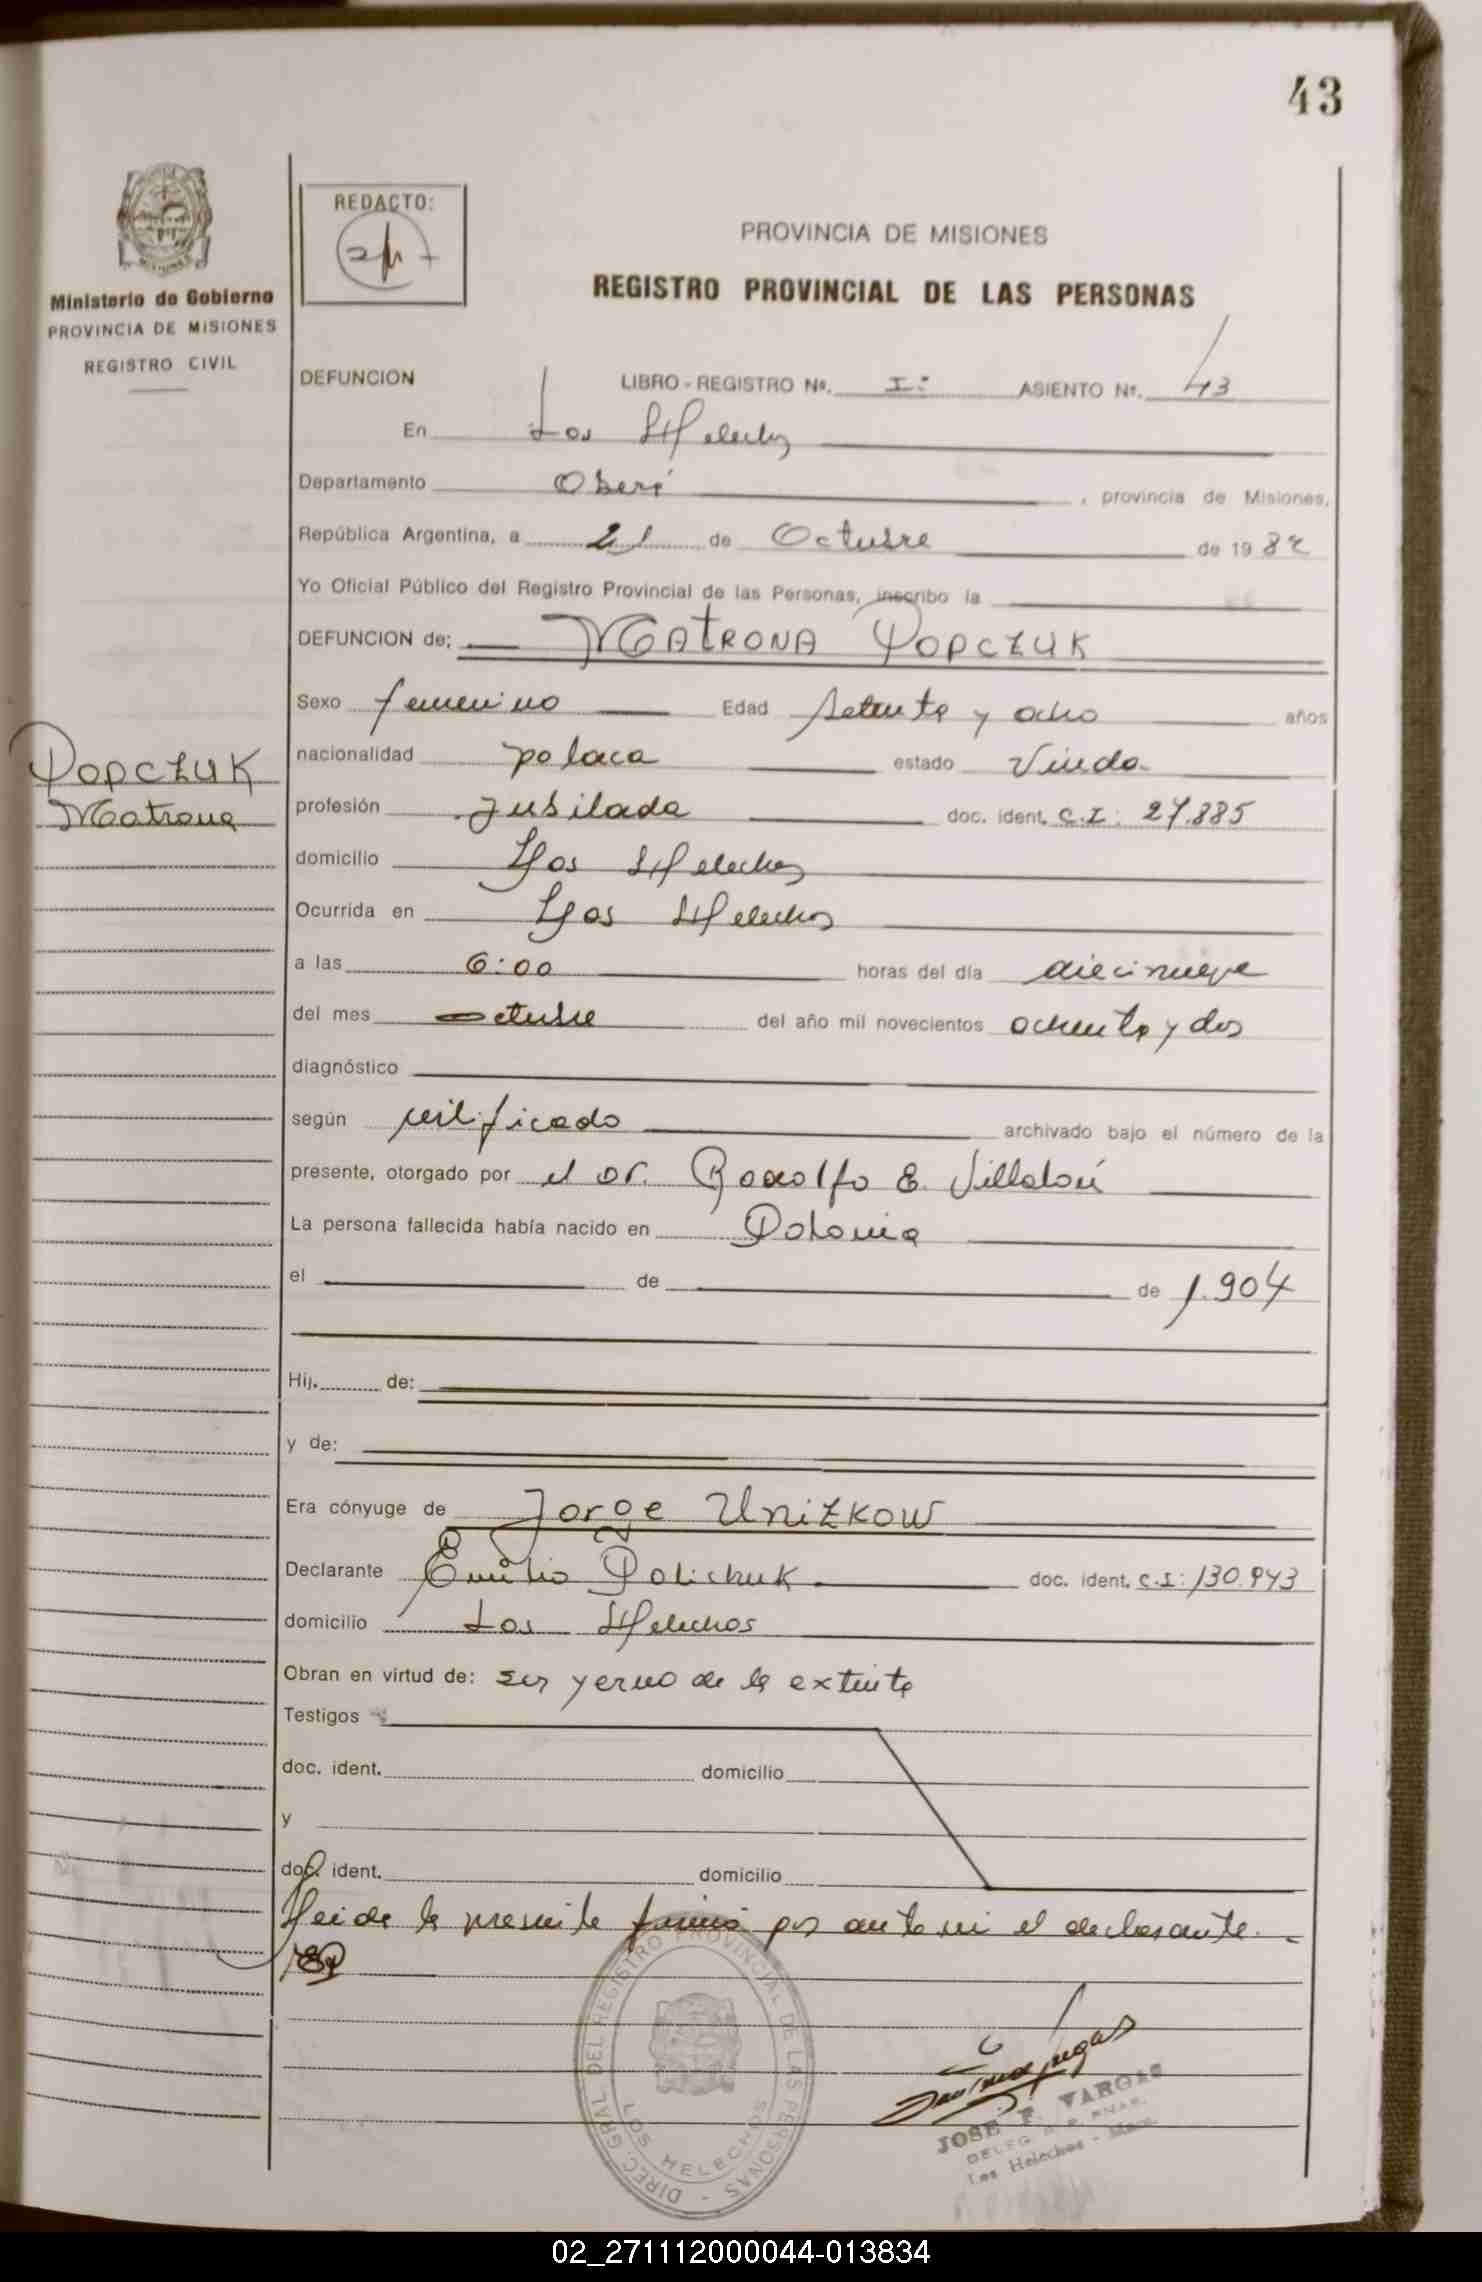 43
REDACTO:
Ministerio de Gobierno
PROVINCIA DE MISIONES
REGISTRO CIVIL
PROVINCIA DE MISIONES
REGISTRO PROVINCIAL DE LAS PERSONAS
DEFUNCION LIBRO - REGISTRO Nº. Iº ASIENTO Nº. 43
En Los Helechos
Departamento Oberá , provincia de Misiones,
República Argentina, a 21 de Octubre de 1982
Yo Oficial Público del Registro Provincial de las Personas, inscribo la
DEFUNCION de: MATRONA POPCZUK
Sexo femenino Edad setenta y ocho años
POPCZUK
Matrona
nacionalidad polaca estado Viuda
profesión Jubilada doc. ident. C.I: 27.885
domicilio Los Helechos
Ocurrida en Los Helechos
a las 6:00 horas del día diecinueve
del mes octubre del año mil novecientos ochenta y dos
diagnóstico
según certificado archivado bajo el número de la
presente, otorgado por el Dr. Rodolfo E. Villalón
La persona fallecida había nacido en Polonia
el de de 1.904
Hij. de:
y de:
Era cónyuge de Jorge UniZKOW
Declarante Emilio Polichuk doc. ident. C.I: 130.943
domicilio Los Helechos
Obran en virtud de: ser yerno de la extinta
Testigos
doc. ident. domicilio
y
doc. ident. domicilio
Leida la presente firma por ante mi el declarante.
DIREC. GRAL DEL REGISTRO PROVINCIAL DE LAS PERSONAS -
LOS HELECHOS
JOSE F. VARGAS
Los Helechos - Mnes.
02_271112000044-013834